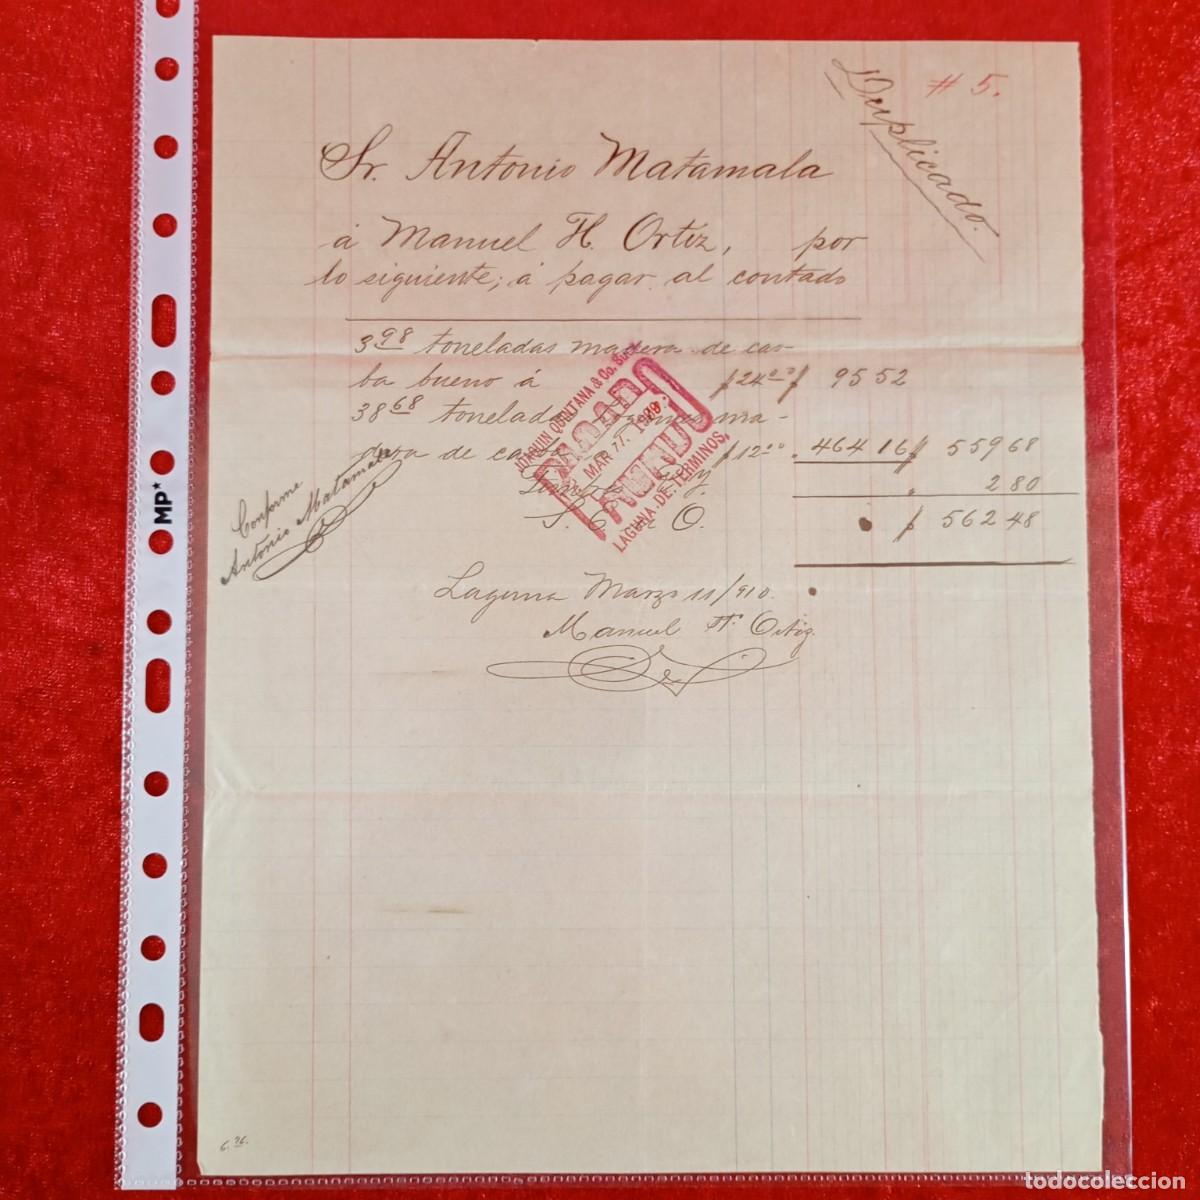 # 5.
Duplicado.
Sr. Antonio Matamala
á Manuel H. Ortíz, por
lo siguiente; á pagar al contado
3 98 toneladas madera de cas-
ba bueno á $ 24 00 $ 95 52
38 68 toneladas ma-
dera de $ 12 00 464 16 $ 559 68
2 80
S. E. ú O. $ 562 48
JOAQUIN QUINTANA & Co. Sucs.
PAGADO
MAR 17. 1909.
LAGUNA DE TERMINOS.
Conforme
Antonio Matamala
Laguna Marzo 11/910.
Manuel H. Ortiz
MP
6.76.
todocoleccion